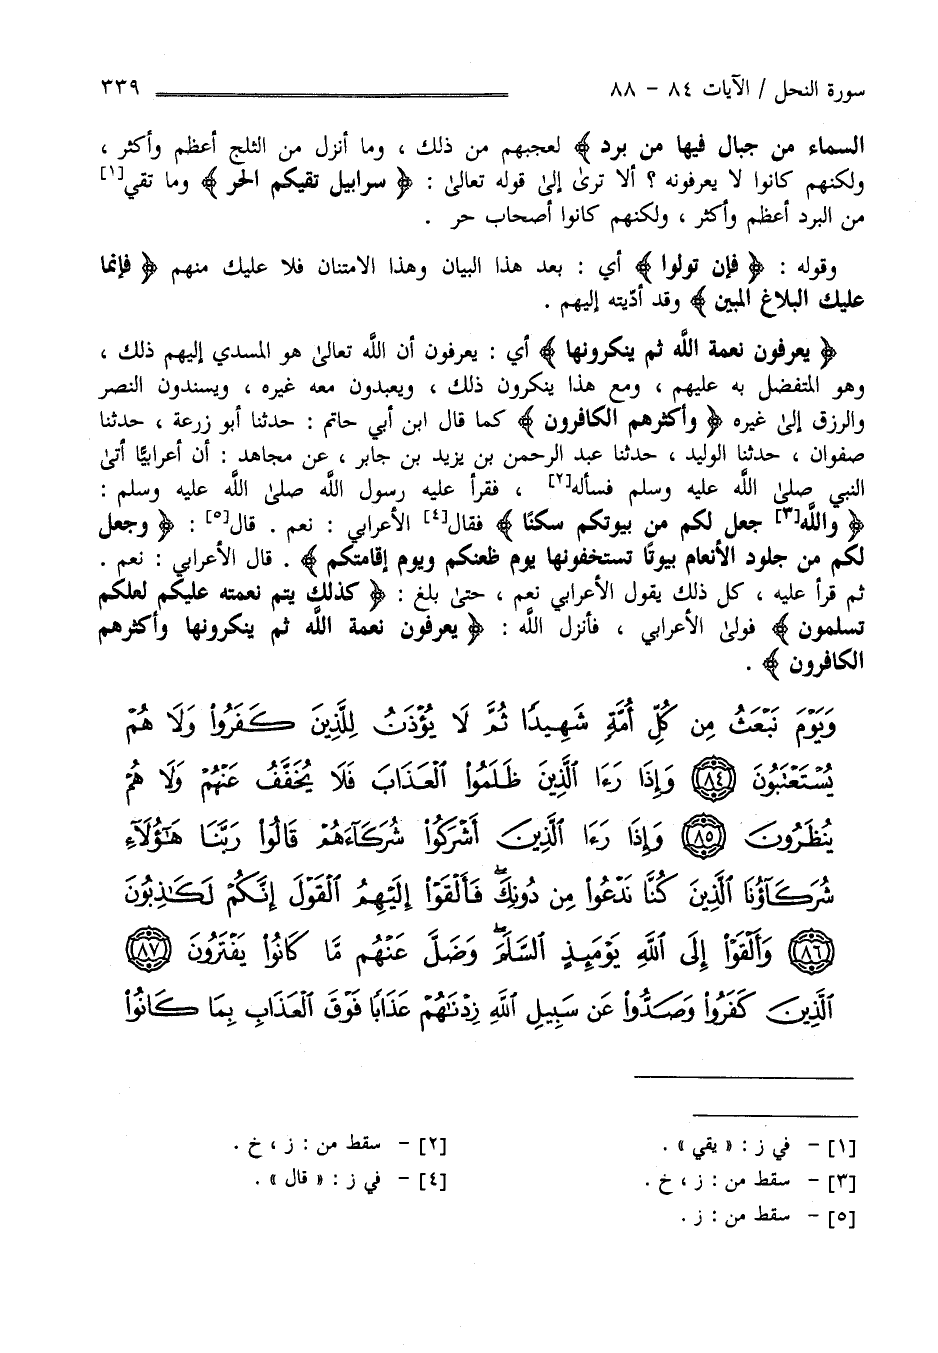 سورة النحل / الآيات ٨٤ - ٨٨ ٣٣٩
السماء من جبال فيها من برد ﴾ لعجبهم من ذلك ، وما أنزل من الثلج أعظم وأكثر ،
ولكنهم كانوا لا يعرفونه ؟ ألا ترىٰ إلىٰ قوله تعالىٰ : ﴿ سرابيل تقيكم الحر ﴾ وما تقي[١]
من البرد أعظم وأكثر ، ولكنهم كانوا أصحاب حر .
وقوله : ﴿ فإن تولوا ﴾ أي : بعد هذا البيان وهذا الامتنان فلا عليك منهم ﴿ فإنما
عليك البلاغ المبين ﴾ وقد أدّيته إليهم .
﴿ يعرفون نعمة اللَّه ثم ينكرونها ﴾ أي : يعرفون أن اللَّه تعالىٰ هو المسدي إليهم ذلك ،
وهو المتفضل به عليهم ، ومع هذا ينكرون ذلك ، ويعبدون معه غيره ، ويسندون النصر
والرزق إلىٰ غيره ﴿ وأكثرهم الكافرون ﴾ كما قال ابن أبي حاتم : حدثنا أبو زرعة ، حدثنا
صفوان ، حدثنا الوليد ، حدثنا عبد الرحمن بن يزيد بن جابر ، عن مجاهد : أن أعرابيًّا أتىٰ
النبي صلىٰ اللَّه عليه وسلم فسأله[٢] ، فقرأ عليه رسول اللَّه صلىٰ اللَّه عليه وسلم :
﴿ واللَّه[٣] جعل لكم من بيوتكم سكنًا ﴾ فقال[٤] الأعرابي : نعم . قال[٥] : ﴿ وجعل
لكم من جلود الأنعام بيوتًا تستخفونها يوم ظعنكم ويوم إقامتكم ﴾ . قال الأعرابي : نعم .
ثم قرأ عليه ، كل ذلك يقول الأعرابي نعم ، حتىٰ بلغ : ﴿ كذلك يتم نعمته عليكم لعلكم
تسلمون ﴾ فولىٰ الأعرابي ، فأنزل اللَّه : ﴿ يعرفون نعمة اللَّه ثم ينكرونها وأكثرهم
الكافرون ﴾ .
وَيَوْمَ نَبْعَثُ مِن كُلِّ أُمَّةٍ شَهِيدًا ثُمَّ لَا يُؤْذَنُ لِلَّذِينَ كَفَرُوا۟ وَلَا هُمْ
يُسْتَعْتَبُونَ ٨٤ وَإِذَا رَءَا ٱلَّذِينَ ظَلَمُوا۟ ٱلْعَذَابَ فَلَا يُخَفَّفُ عَنْهُمْ وَلَا هُمْ
يُنظَرُونَ ٨٥ وَإِذَا رَءَا ٱلَّذِينَ أَشْرَكُوا۟ شُرَكَآءَهُمْ قَالُوا۟ رَبَّنَا هَٰٓؤُلَآءِ
شُرَكَآؤُنَا ٱلَّذِينَ كُنَّا نَدْعُوا۟ مِن دُونِكَ ۖ فَأَلْقَوْا۟ إِلَيْهِمُ ٱلْقَوْلَ إِنَّكُمْ لَكَٰذِبُونَ
٨٦ وَأَلْقَوْا۟ إِلَى ٱللَّهِ يَوْمَئِذٍ ٱلسَّلَمَ ۖ وَضَلَّ عَنْهُم مَّا كَانُوا۟ يَفْتَرُونَ ٨٧
ٱلَّذِينَ كَفَرُوا۟ وَصَدُّوا۟ عَن سَبِيلِ ٱللَّهِ زِدْنَٰهُمْ عَذَابًا فَوْقَ ٱلْعَذَابِ بِمَا كَانُوا۟
[١] - في ز : « يقي » . [٢] - سقط من : ز ، خ .
[٣] - سقط من : ز ، خ . [٤] - في ز : « قال » .
[٥] - سقط من : ز .